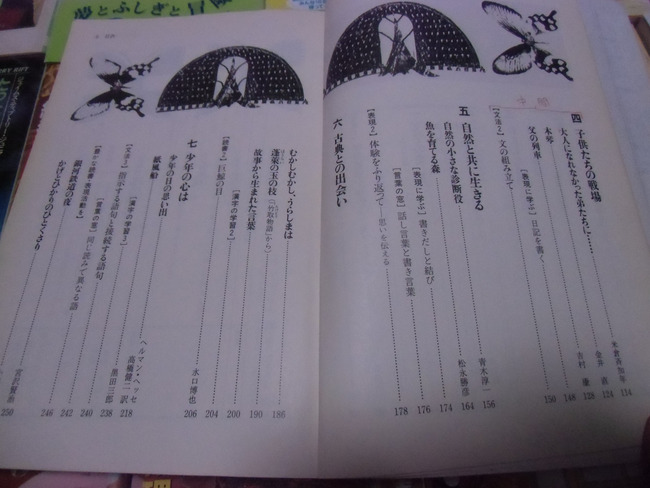 四 子供たちの戦場
大人になれなかった弟たちに…… 米倉斉加年
木琴 金井 直 124
父の列車 吉村 康 128
[表現に学ぶ] 日記を書く 148
[文法2] 文の組み立て 150
五 自然と共に生きる
自然の小さな診断役 青木淳一 156
魚を育てる森 松永勝彦 164
[表現に学ぶ] 書きだしと結び 174
[言葉の窓] 話し言葉と書き言葉 176
[表現2] 体験をふり返って 思いを伝える 178
六 古典との出会い
むかしむかし、うらしまは 186
蓬莱の玉の枝 「竹取物語」から 190
故事から生まれた言葉 200
[漢字の学習2] 204
[読書2] 巨鯨の目 水口博也 206
七 少年の心は
少年の日の思い出 ヘルマン・ヘッセ 高橋健二 訳 218
紙風船 黒田三郎 238
[漢字の学習3] 240
[文法3] 指示する語句と接続する語句 242
[言葉の窓] 同じ読みで異なる語 246
銀河鉄道の夜 宮沢賢治 250
かげとひかりのひとくさり